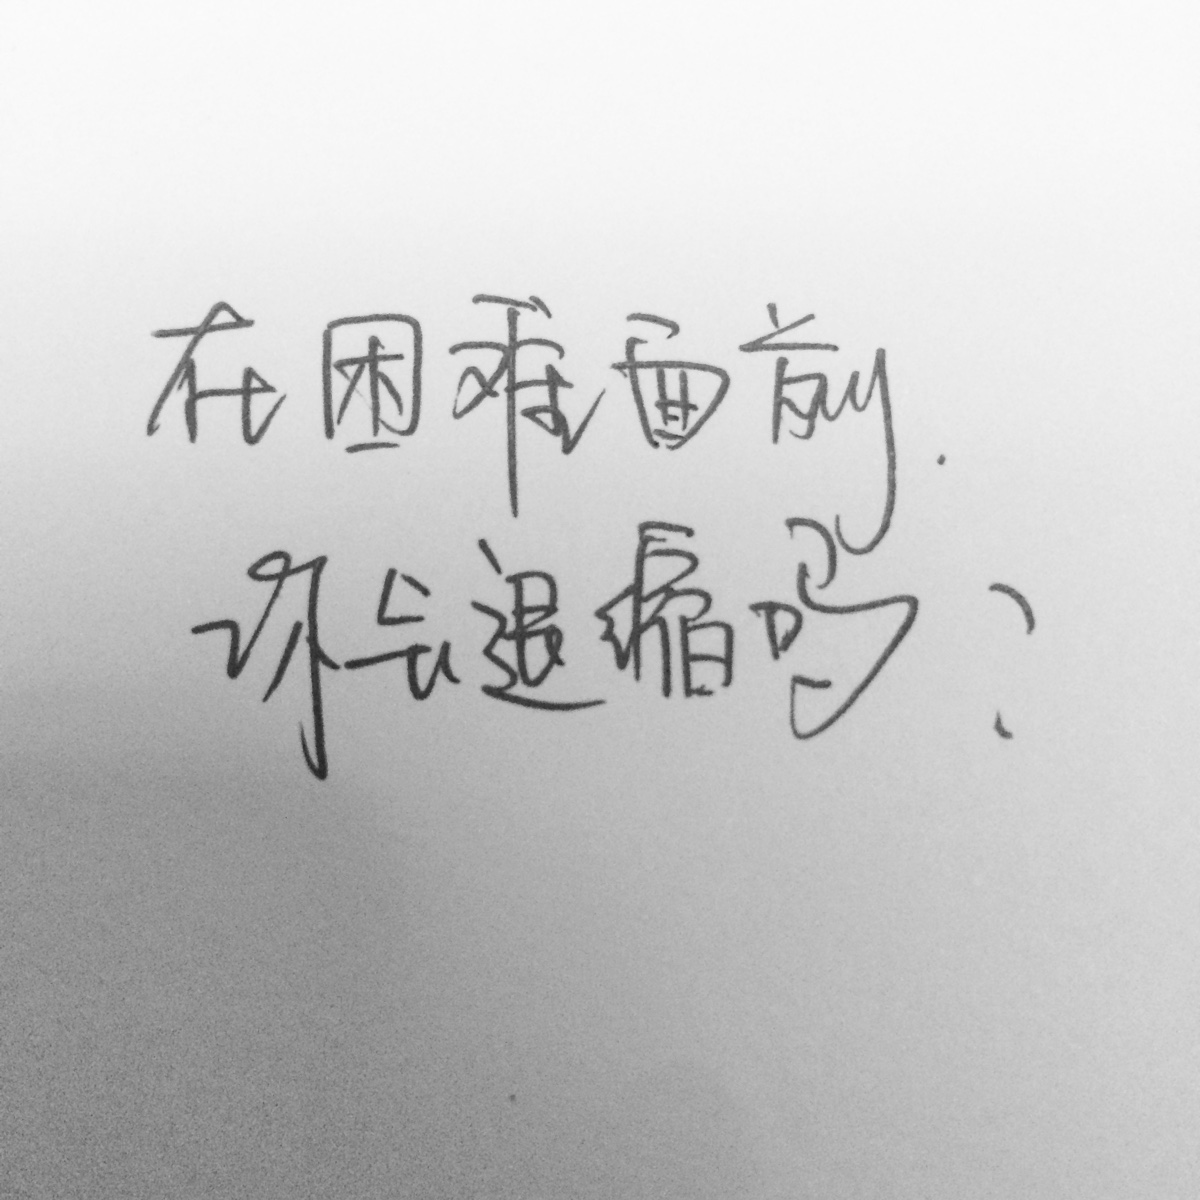 在困难面前.
你会退缩吗？